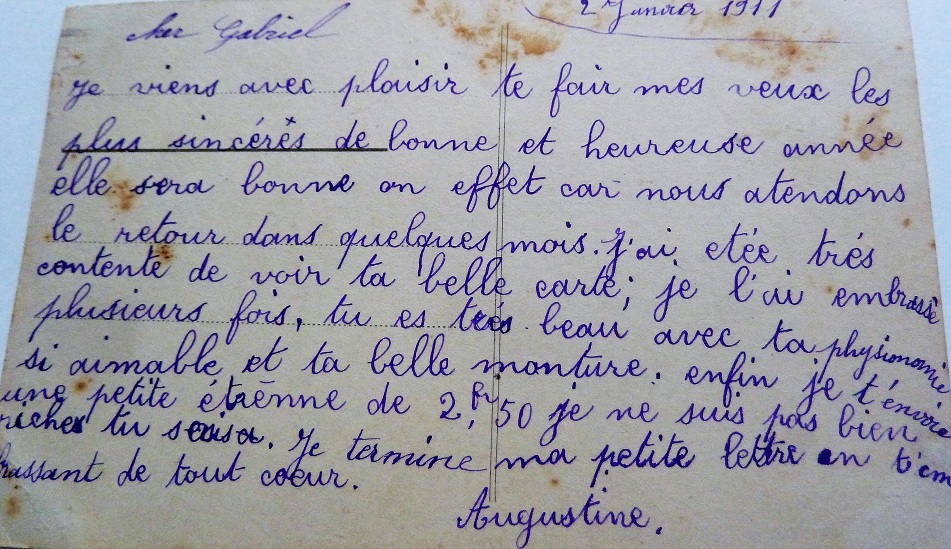 2 Janvier 1911
Cher Gabriel
Je viens avec plaisir te fair mes veux les
plus sincérès de bonne et heureuse année
elle sera bonne en effet car nous atendons
le retour dans quelques mois. J'ai etée trés
contente de voir ta belle carte; je l'ai embrassè
plusieurs fois, tu es trés beau avec ta physionomie
si aimable et ta belle monture. enfin je t'énvoie
une petite étrènne de 2,fr50 je ne suis pas bien
riche tu sais. Je termine ma petite lettre en t'em
brassant de tout cœur.
Augustine.